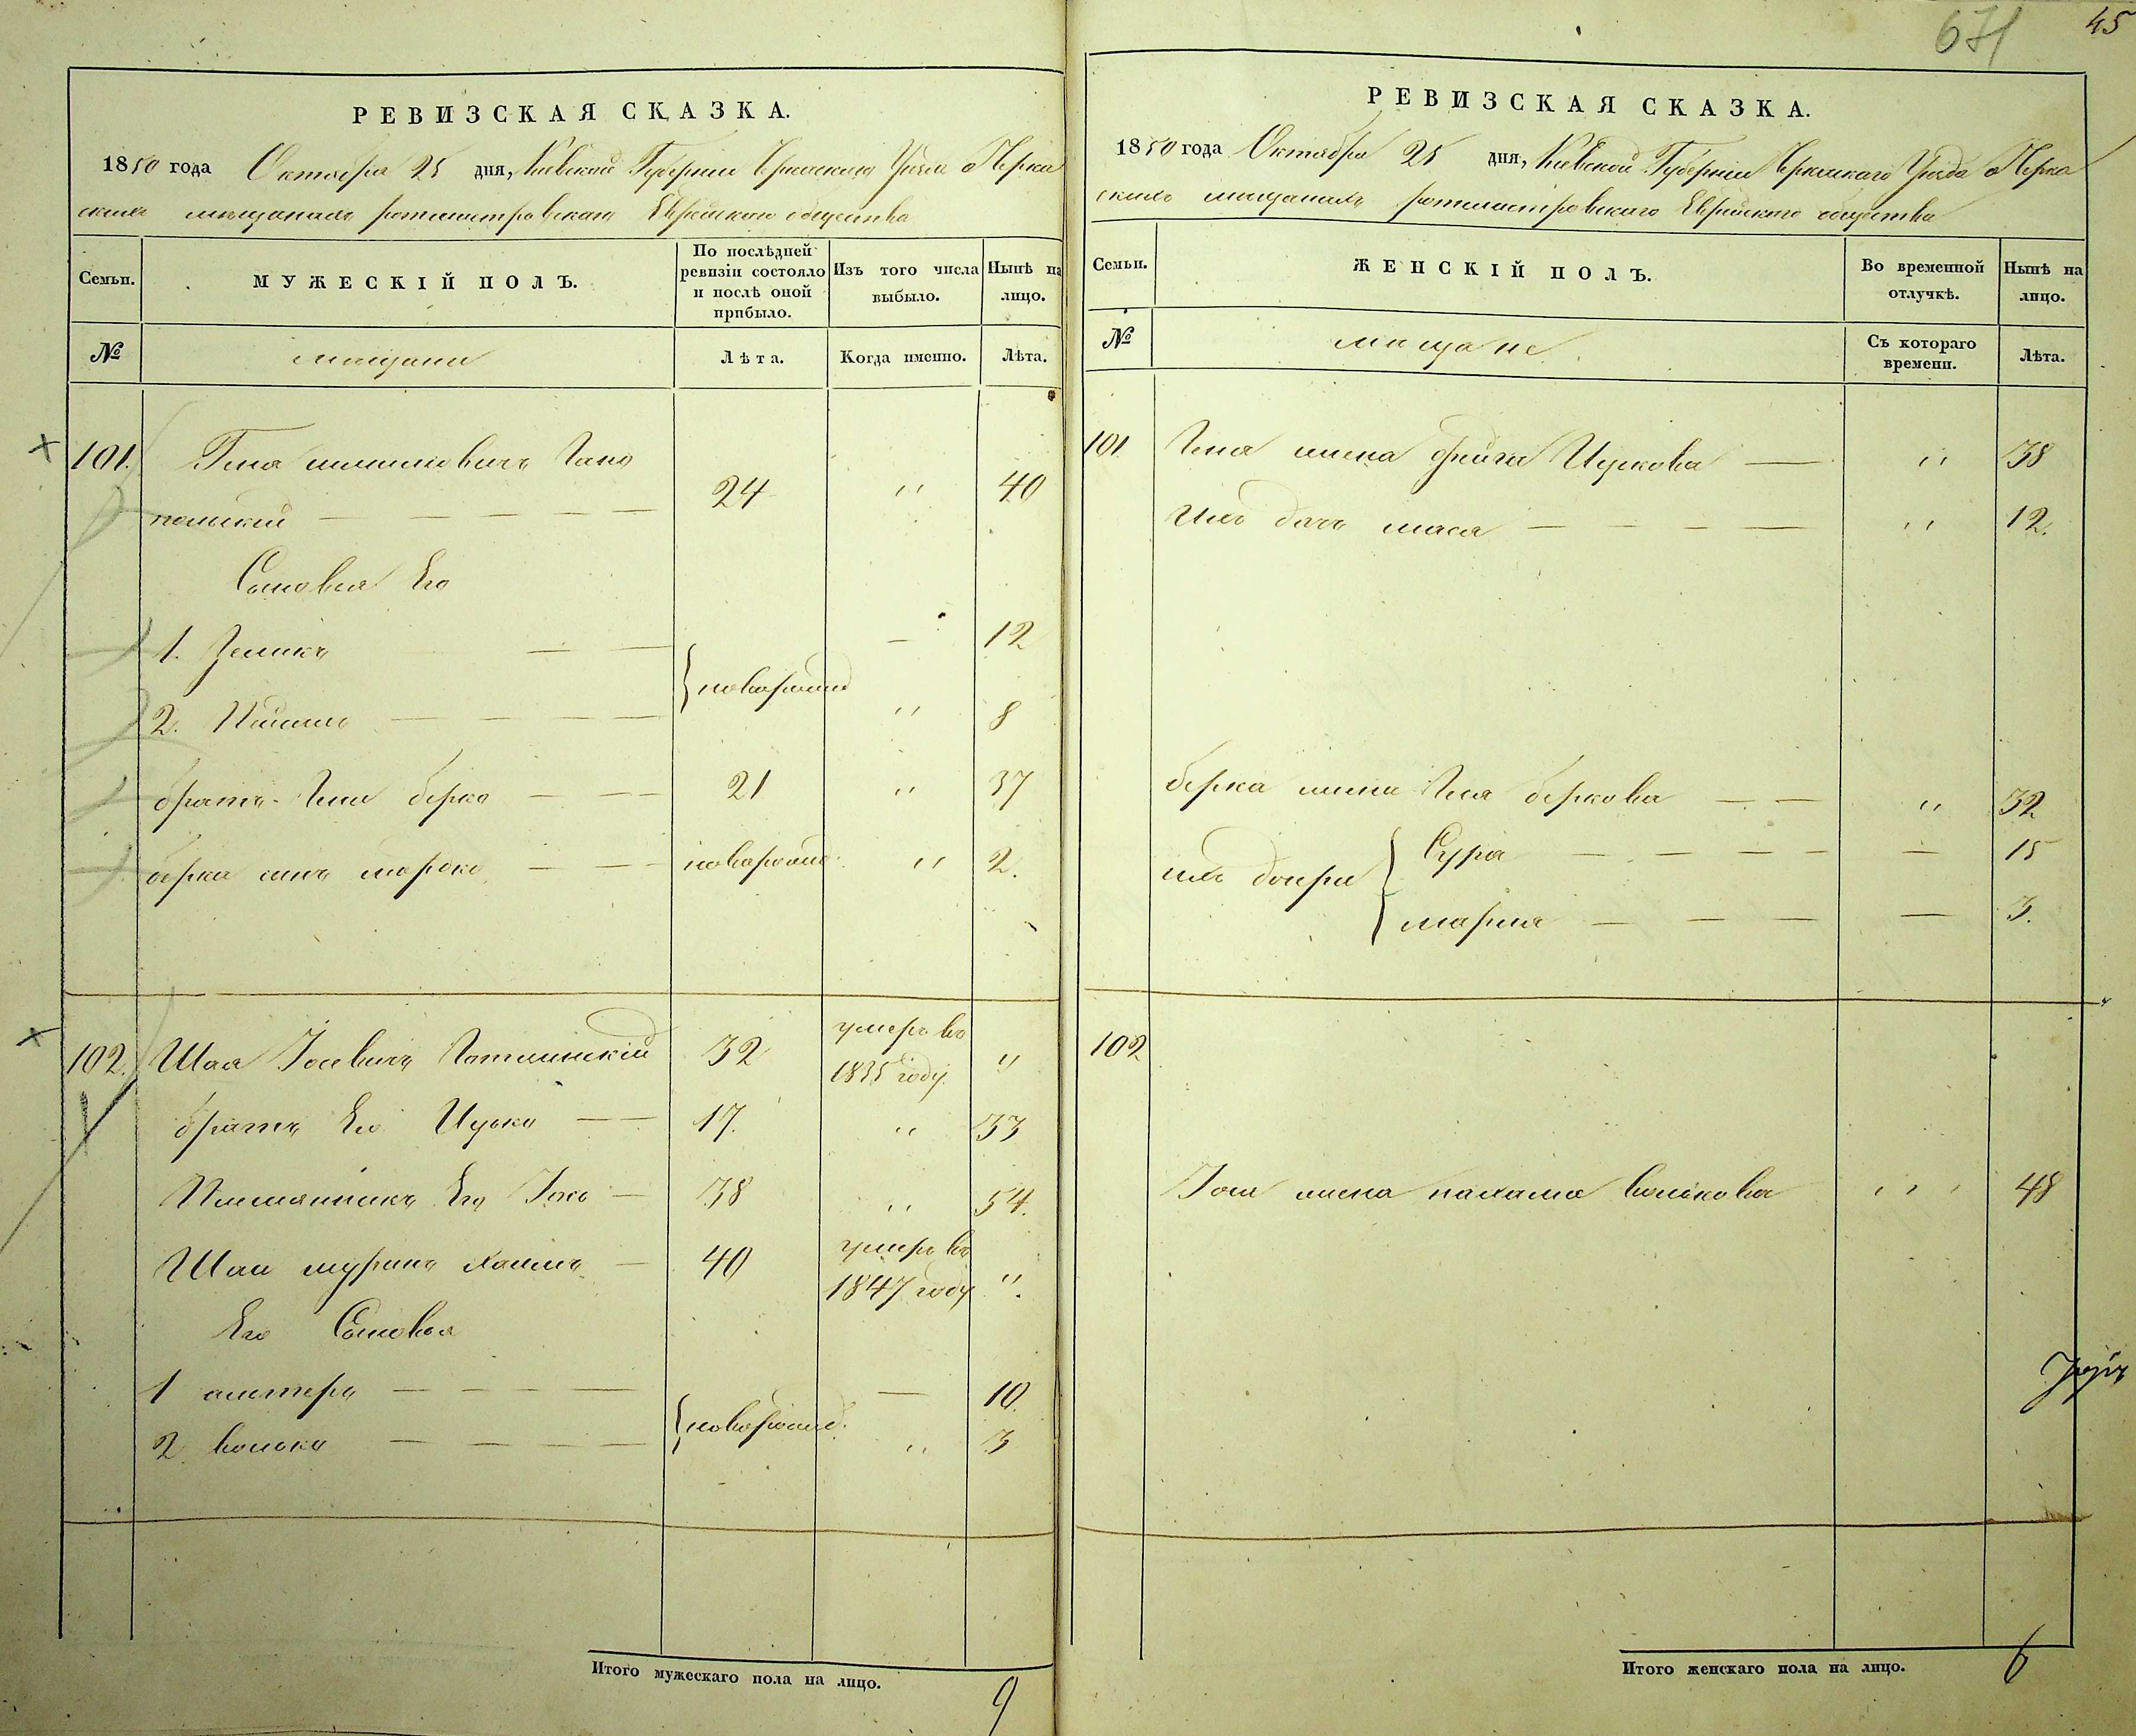 671 45
РЕВИЗСКАЯ СКАЗКА.
1850 года Октября 25 дня, Киевской Губернии Черкаскаго Уѣзда о Черка
скихъ мещанахъ ротмистровскаго Еврейскаго общества
Семьи.
МУЖЕСКІЙ ПОЛЪ.
По послѣдней ревизіи состояло и послѣ оной прибыло.
Изъ того числа выбыло.
Нынѣ на лицо.
№
мещане
Лѣта.
Когда именно.
Лѣта.
101.
24 " 40
Сыновья Его
1. Зеликъ — — — 12
2. — — — — " 8
новорожд
братъ берко — — — 21 " 37
берка сынъ мордко — — — новорожд. " 2.
102. Шая Іосевичъ 32 умеръ въ 1835 году. "
братъ Его Ицько — — 17. " 33
Племянникъ Его Іось — 38 " 54.
Шаи шуринъ хаимъ — 40 умеръ въ 1847 году "
Его Сыновья
1 альтеръ — — — — — 10.
2. волько — — — — " 3
новорожд.
Итого мужескаго пола на лицо.
9
РЕВИЗСКАЯ СКАЗКА.
1850 года Октября 25 дня, Киевской Губернии Черкаскаго Уѣзда о Черка
скихъ мещанахъ ротмистровскаго Еврейскаго общества
Семьи.
ЖЕНСКІЙ ПОЛЪ.
Во временной отлучкѣ.
Нынѣ на лицо.
№
мещане.
Съ котораго времени.
Лѣта.
101 жена фейга Ицкова — " 38
Ихъ дочь шася — — — — " 12.
берка жена беркова — — " 32
ихъ дочери
Сура — — — — — 15
марья — — — — 3.
102
Іося жена нахама волькова " 48
Итого женскаго пола на лицо.
6